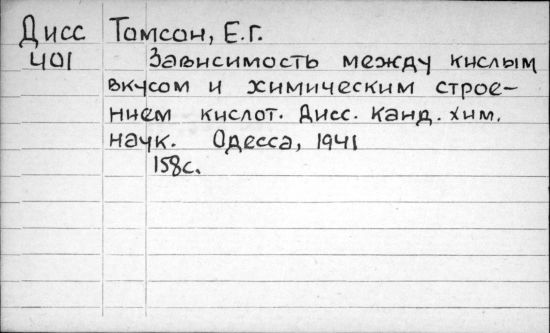 Дисс Томсон, Е.Г.
401 Зависимость между кислым
вкусом и химическим строе-
нием кислот. Дисс. Канд. хим.
наук. Одесса, 1941
158с.